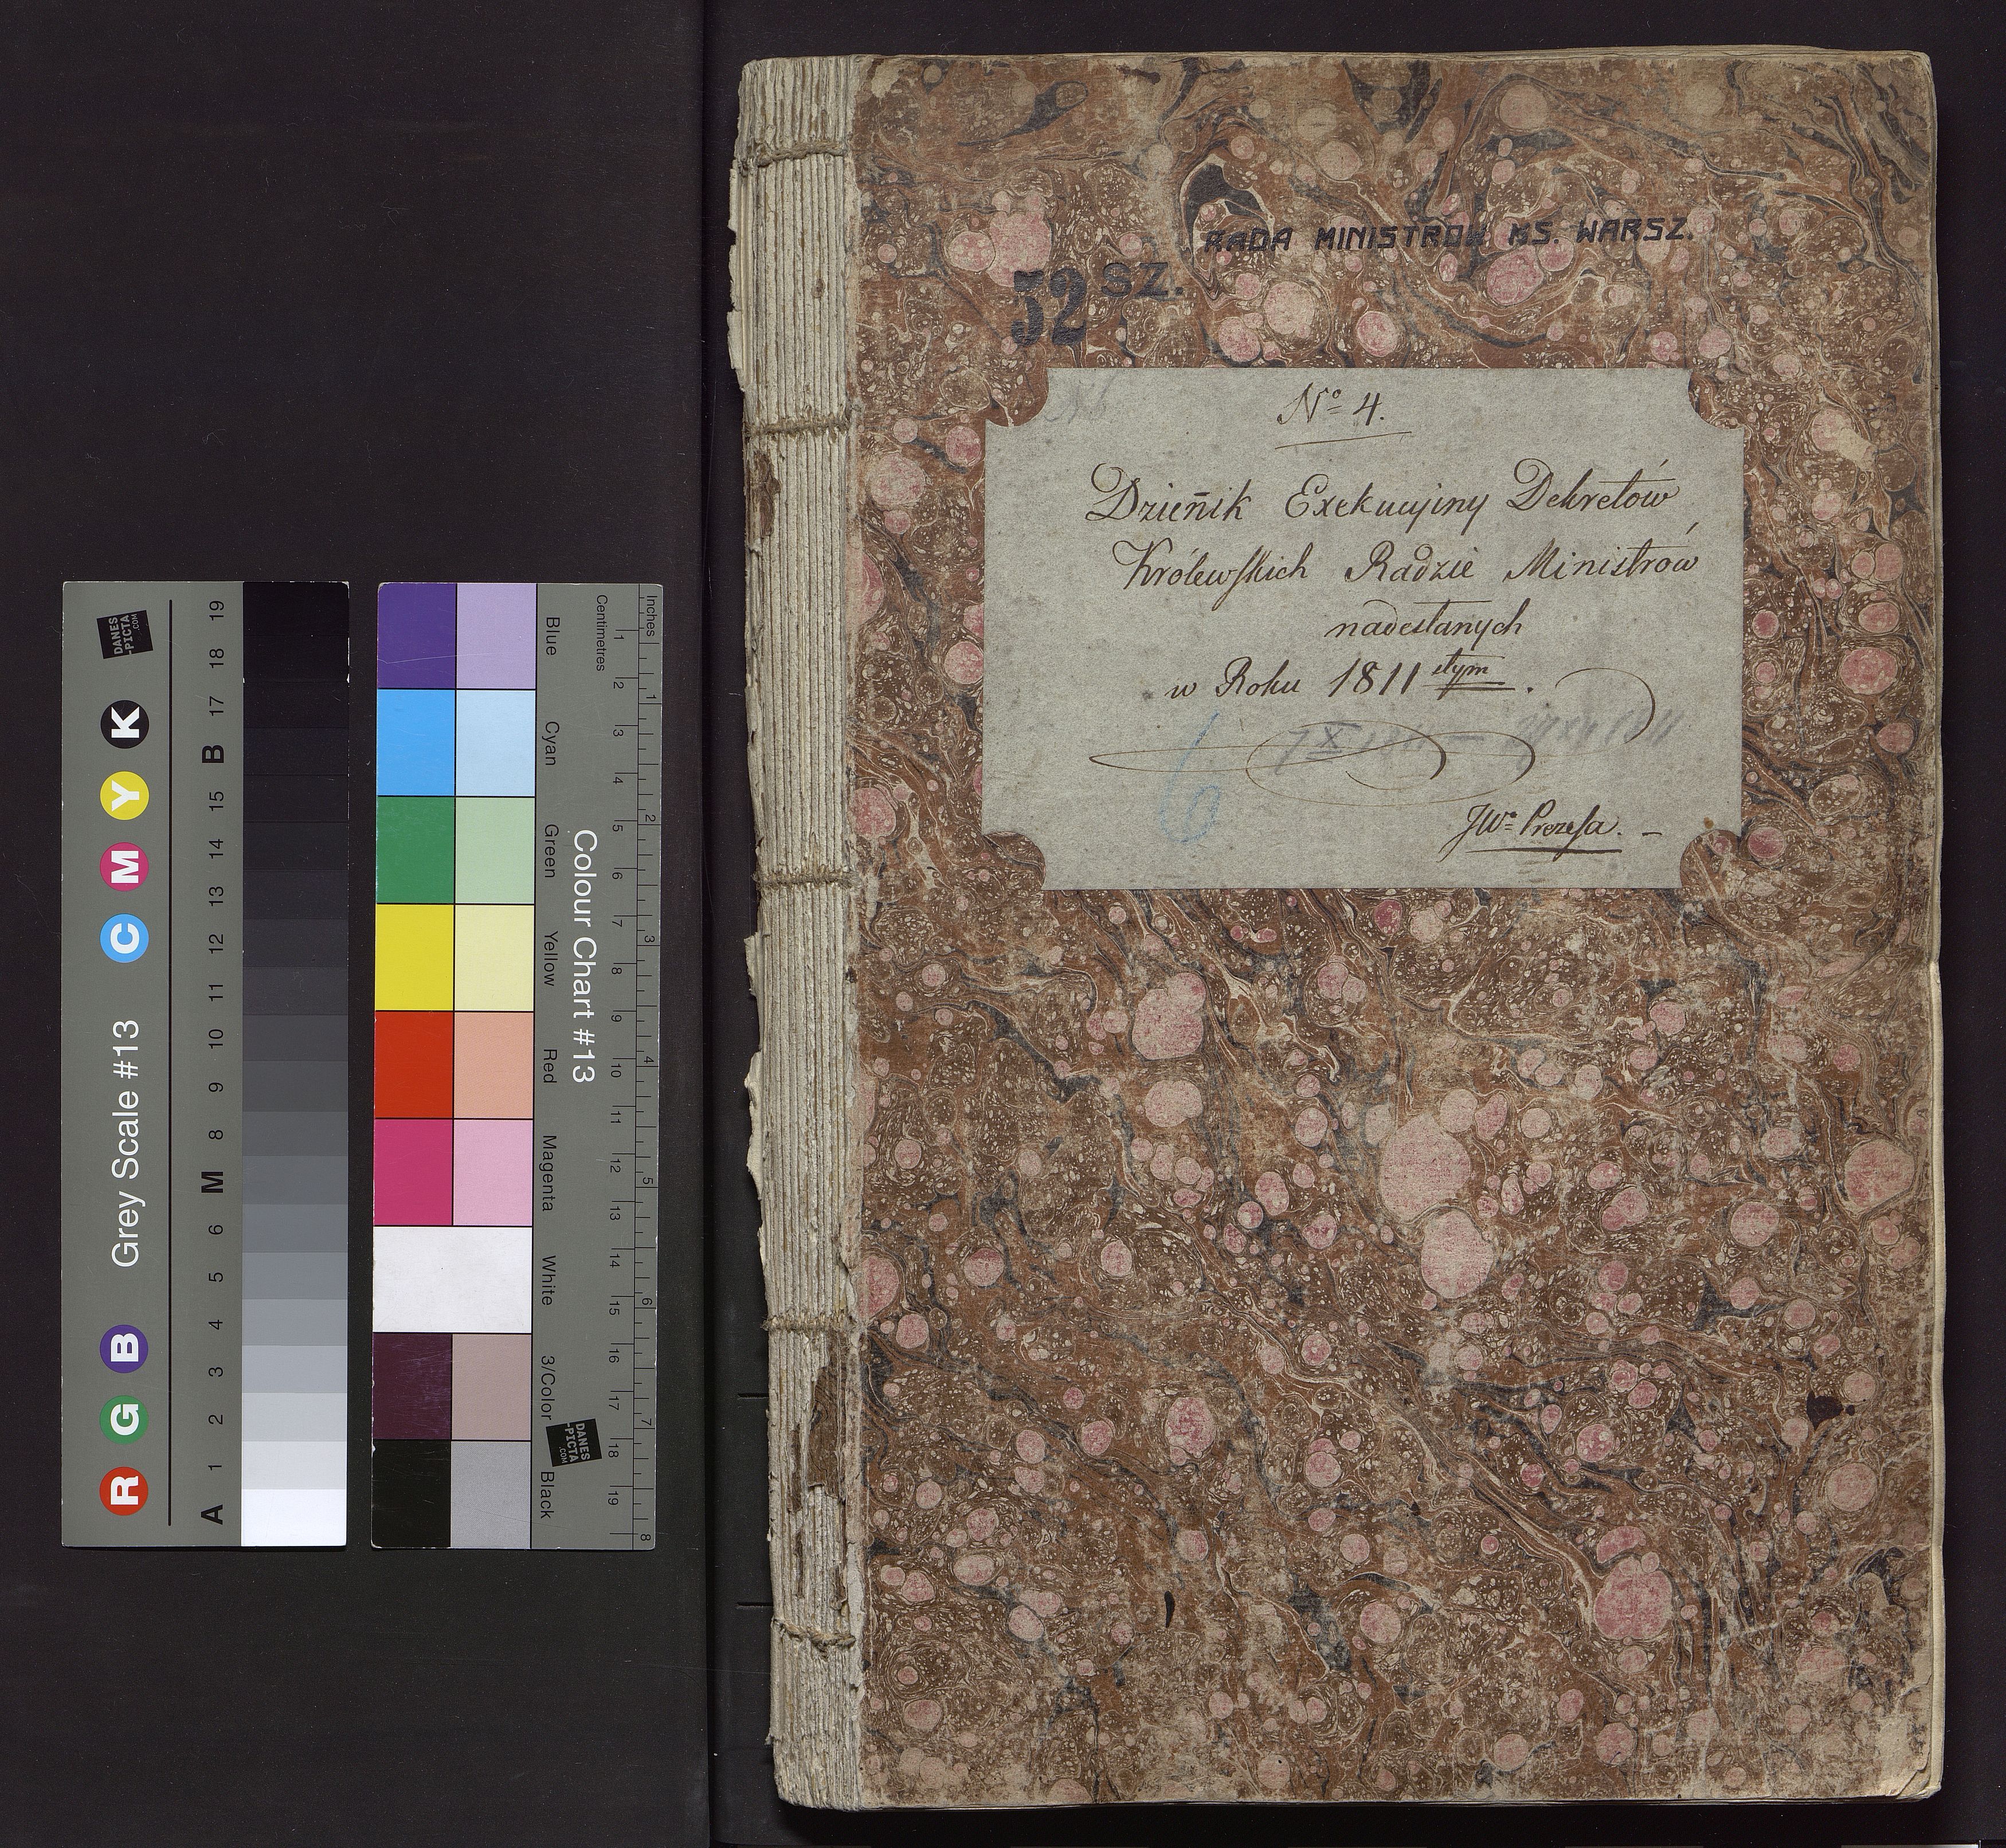 RADA MINISTRÓW KS. WARSZ.
52 SZ.
Nº 4.
Dzien̄ik Exekucyiny Dekretów
Królewſkich Radzie Ministrów
nadesłanych
w Roku 1811 stym.
7 X
6
JWº Prezeſa. –
DANES
-PICTA
.COM
Grey Scale #13
R G B C M Y K
A 1 2 3 4 5 6 M 8 9 10 11 12 13 14 15 B 17 18 19
Colour Chart #13
Blue Cyan Green Yellow Red Magenta White 3/Color Black
Inches
1 2 3 4 5 6 7 8
Centimetres
1 2 3 4 5 6 7 8 9 10 11 12 13 14 15 16 17 18 19
DANES
-PICTA
.COM